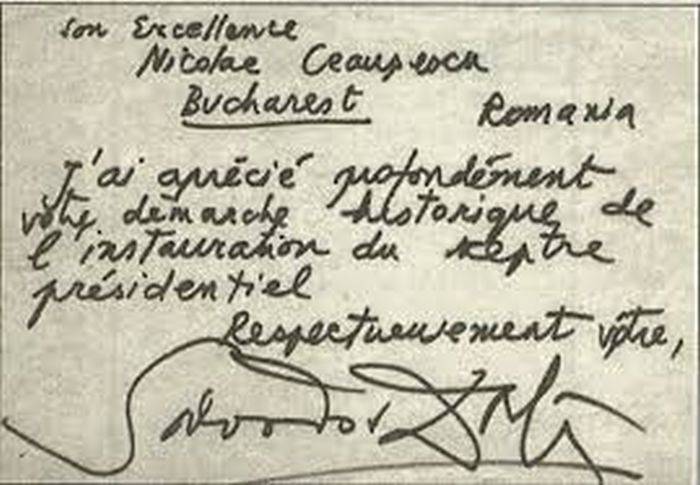 son Excellence
Nicolae Ceauşescu
Bucharest Romania
J'ai aprécié profondément
votre démarche historique de
l'instauration du sceptre
présidentiel
Respectueusement vôtre,
Salvador Dalí